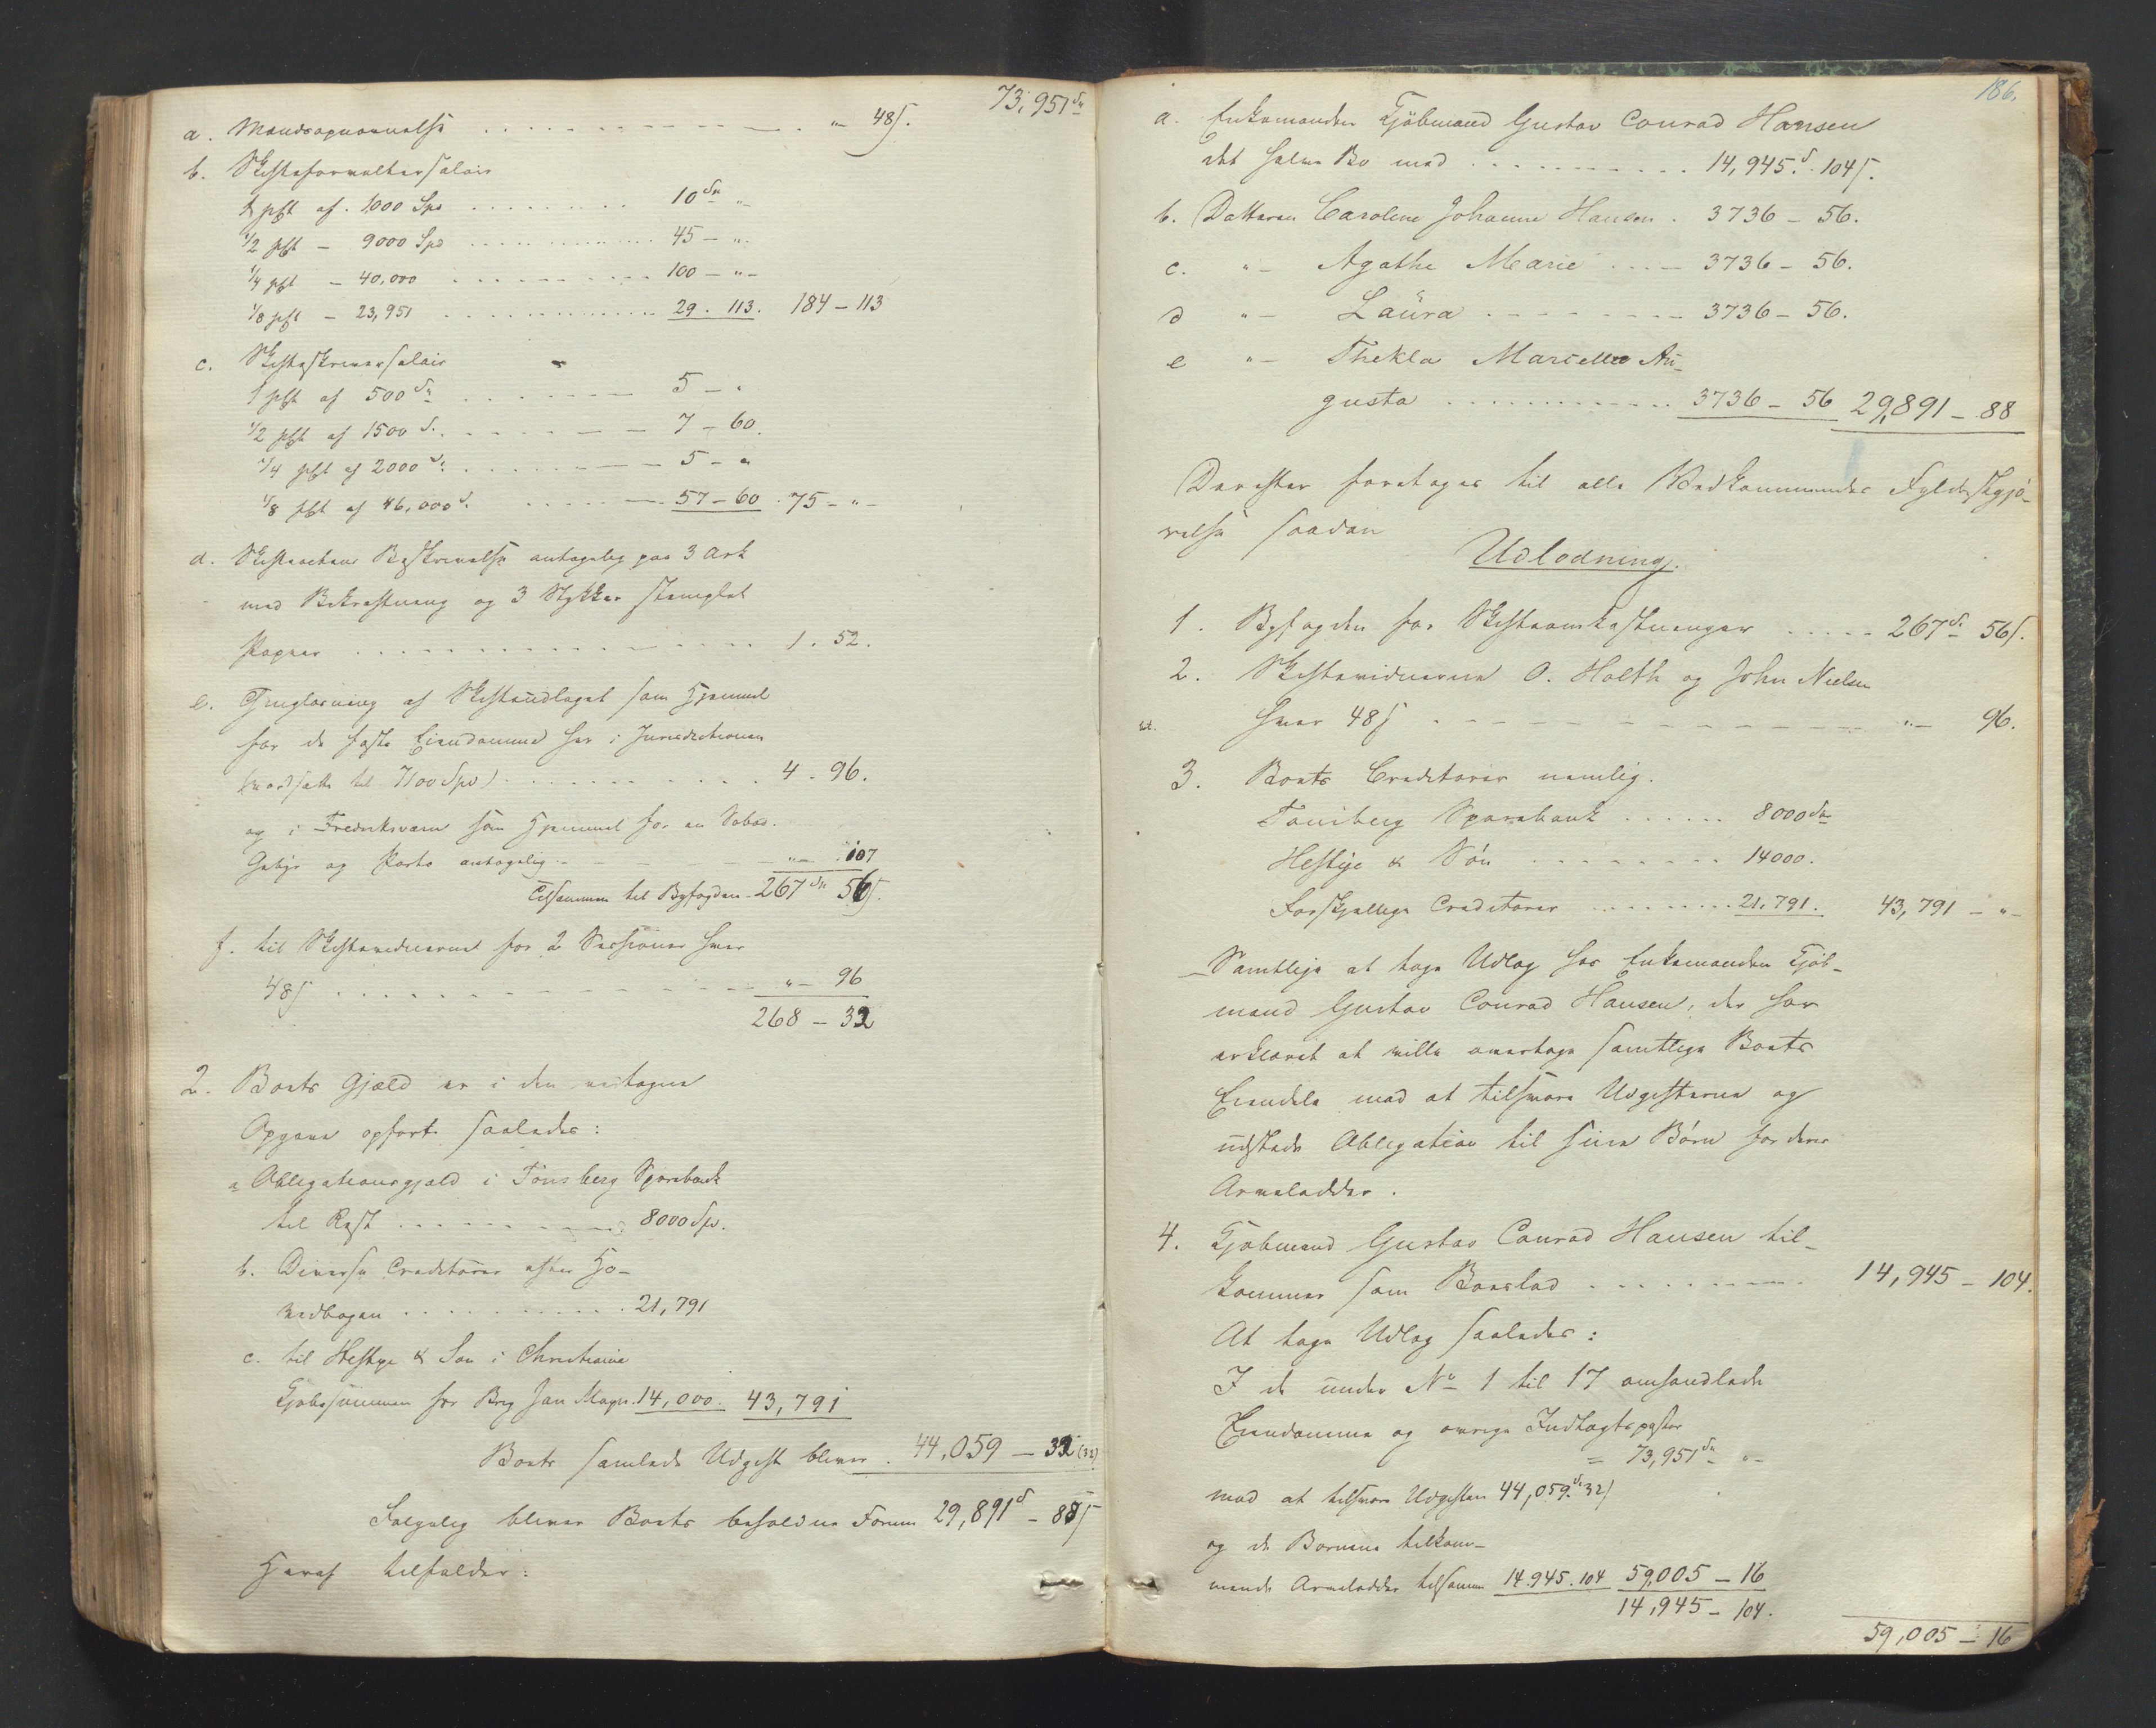 73,951 Sp
a. Mandsopnævnelse . . . . . . . . "– 48 ſ.
b. Skifteforvaltersalair
1 pCt af 1000 Spd . . . . . . . 10 Sp "
1/2 pCt – 9000 Spd . . . . . . . 45 – "
1/4 pCt – 40,000 . . . . . . . 100 – "–
1/8 pCt – 23,951 . . . . . . . 29 . 113. 184 – 113
c. Skifteskriversalair
1 pCt af 500 Sp . . . . . . . 5 – "
1/2 pCt af 1500 S. . . . . . . 7 – 60.
1/4 pCt af 2000 S. . . . . . . 5 – "
1/8 pCt af 46,000 S. . . . . . . 57 – 60 . 75 – "–
d. Skifteactens Beskrivelse antagelig paa 3 Ark
med Bekræftning og 3 Stykker stemplet
Papiir . . . . . . . . . . 1 . 52.
e. Thinglæsning af Skifteudlæget som Hjemmel
for de faste Eiendomme her i Jurisdictionen
(værdsatte til 7100 Spd) . . . . . . . 4 . 96.
og i Fredriksværn som Hjemmel for en Søbod.
Gebyr og Porto antagelig – – – – "– 107
Tilsammen til Byfogden – 267 Sp 56 ſ.
f. til Skiftevidnerne for 2 Sessioner hver
48 ſ . . . . . . . . . . "– 96
268 – 32
2. Boets Gjæld er i den antagne
Opgave opført saaledes:
a Obligationsgjæld i Tönsberg Sparebank
til Rest . . . . . . . 8000 Spd.
b. Diverse Creditorer efter Ho-
vedbogen . . . . . . . 21,791
c. til Heftye & Søn i Christiania
Kjøbesummen for Brig Jan Mayn. 14,000. 43,791
Boets samlede Udgift bliver . 44,059 – 32 (32)
Følgelig bliver Boets beholdne Formue 29,891 S – 88 ſ
Heraf tilfalder:
186.
a. Enkemanden Kjöbmand Gustav Conrad Hansen
det halve Bo med . . . . . . . 14,945 S. 104 ſ.
b. Datteren Caroline Johanne Hansen . 3736 – 56.
c. "– Agathe Marie . . . – 3736 – 56.
d "– Laura . . . . . . . 3736 – 56.
e "– Thekla Marcellie Au-
gusta . . . . . . . 3736 – 56 29,891 – 88
Derefter foretages til alle Vedkommendes Fyldestgjö-
relse saadan
Udlodning.
1. Byfogden for Skifteomkostninger . . . . . 267 S. 56 ſ.
2. Skiftevidnerne O. Holth og John Nielsen
hver 48 ſ . . . . . . . "– 96.
3. Boets Creditorer nemlig.
Tönsberg Sparebank . . . . . . 8000 Sp
Heftye & Sön . . . . . . . 14000.
Forskjellige Creditorer . . . . . . . 21,791. 43,791 – "–
Samtlige at tage Udlæg hos Enkemanden Kjöb-
mand Gustav Conrad Hansen, der har
erklæret at ville overtage samtlige Boets
Eiendele mod at tilsvare Udgifterne og
udstede Obligation til sine Börn for deres
Arvelodder.
4. Kjöbmand Gustav Conrad Hansen til-
kommer som Boeslod . . . . . . . 14,945 – 104.
At tage Udlæg saaledes:
I de under No 1 til 17 omhandlede
Eiendomme og øvrige Indtægtsposter
= 73,951 Sp "–
mod at tilsvare Udgifter 44,059 S. 32 ſ
og de Børnene tilkom-
mende Arvelodder tilsammen 14.945.104 59,005 – 16
14,945 – 104.
59,005 – 16